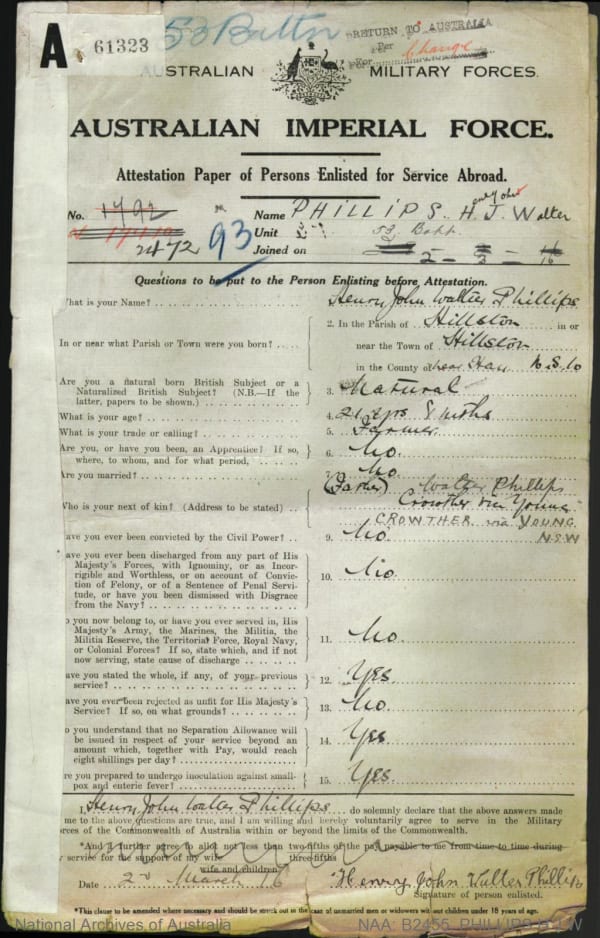 A 61323
53 Battn
RETURN TO AUSTRALIA
Per
For Change
AUSTRALIAN MILITARY FORCES.
AUSTRALIAN IMPERIAL FORCE.
Attestation Paper of Persons Enlisted for Service Abroad.
No. 1792 Name PHILLIPS. H. J. Walter
enry ohn
2472 93 Unit 53 Batt.
Joined on 2 - 3 - 16
Questions to be put to the Person Enlisting before Attestation.
What is your Name? Henry John Walter Phillips
In or near what Parish or Town were you born? 2. In the Parish of Hillston in or
near the Town of Hillston
in the County of near Hay N.S.W
Are you a natural born British Subject or a
Naturalized British Subject? (N.B.—If the
latter, papers to be shown.) 3. Natural
What is your age? 4. 21 yrs 8 mths
What is your trade or calling? 5. Farmer
Are you, or have you been, an Apprentice? If so,
where, to whom, and for what period, 6. No.
Are you married? 7. No
Who is your next of kin? (Address to be stated) (Father) Walter Phillips
Crowther via Young
CROWTHER via YOUNG
NSW
ave you ever been convicted by the Civil Power? 9. No
ave you ever been discharged from any part of His
Majesty's Forces, with Ignominy, or as Incor-
rigible and Worthless, or on account of Convic-
tion of Felony, or of a Sentence of Penal Servi-
tude, or have you been dismissed with Disgrace
from the Navy? 10. No.
o you now belong to, or have you ever served in, His
Majesty's Army, the Marines, the Militia, the
Militia Reserve, the Territorial Force, Royal Navy,
or Colonial Forces? If so, state which, and if not
now serving, state cause of discharge 11. No
ave you stated the whole, if any, of your previous
service? 12. Yes
ave you ever been rejected as unfit for His Majesty's
Service? If so, on what grounds? 13. No
o you understand that no Separation Allowance will
be issued in respect of your service beyond an
amount which, together with Pay, would reach
eight shillings per day? 14. Yes
re you prepared to undergo inoculation against small-
pox and enteric fever? 15. Yes.
I, Henry John Walter Phillips do solemnly declare that the above answers made
me to the above questions are true, and I am willing and hereby voluntarily agree to serve in the Military
orces of the Commonwealth of Australia within or beyond the limits of the Commonwealth.
*And I further agree to allot not less than two-fifths of the pay payable to me from time to time during
service for the support of my wife three-fifths
wife and children
Date 2nd March 16 Henry John Walter Phillips
Signature of person enlisted.
*This clause to be amended where necessary and should be struck out in the case of unmarried men or widowers without children under 18 years of age.
National Archives of Australia NAA: B2455, PHILLIPS H J W